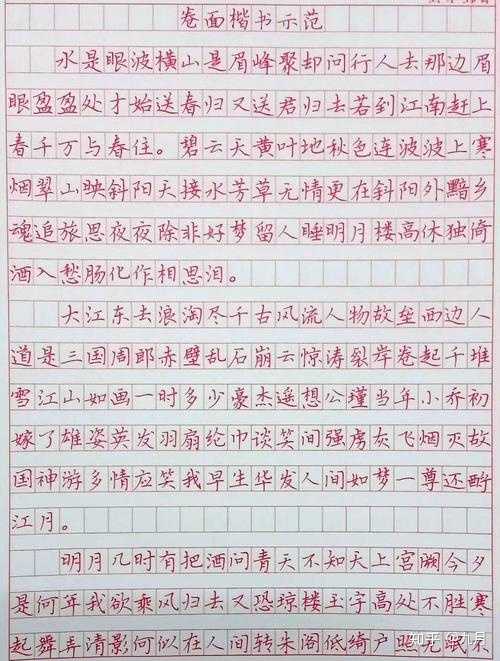 卷面楷书示范
水是眼波横山是眉峰聚却问行人去那边眉
眼盈盈处才始送春归又送君归去若到江南赶上
春千万与春住。碧云天黄叶地秋色连波波上寒
烟翠山映斜阳天接水芳草无情更在斜阳外黯乡
魂追旅思夜夜除非好梦留人睡明月楼高休独倚
酒入愁肠化作相思泪。
大江东去浪淘尽千古风流人物故垒西边人
道是三国周郎赤壁乱石崩云惊涛裂岸卷起千堆
雪江山如画一时多少豪杰遥想公瑾当年小乔初
嫁了雄姿英发羽扇纶巾谈笑间强虏灰飞烟灭故
国神游多情应笑我早生华发人间如梦一尊还酹
江月。
明月几时有把酒问青天不知天上宫阙今夕
是何年我欲乘风归去又恐琼楼玉宇高处不胜寒
起舞弄清影何似在人间转朱阁低绮户照无眠不
知乎 @九月